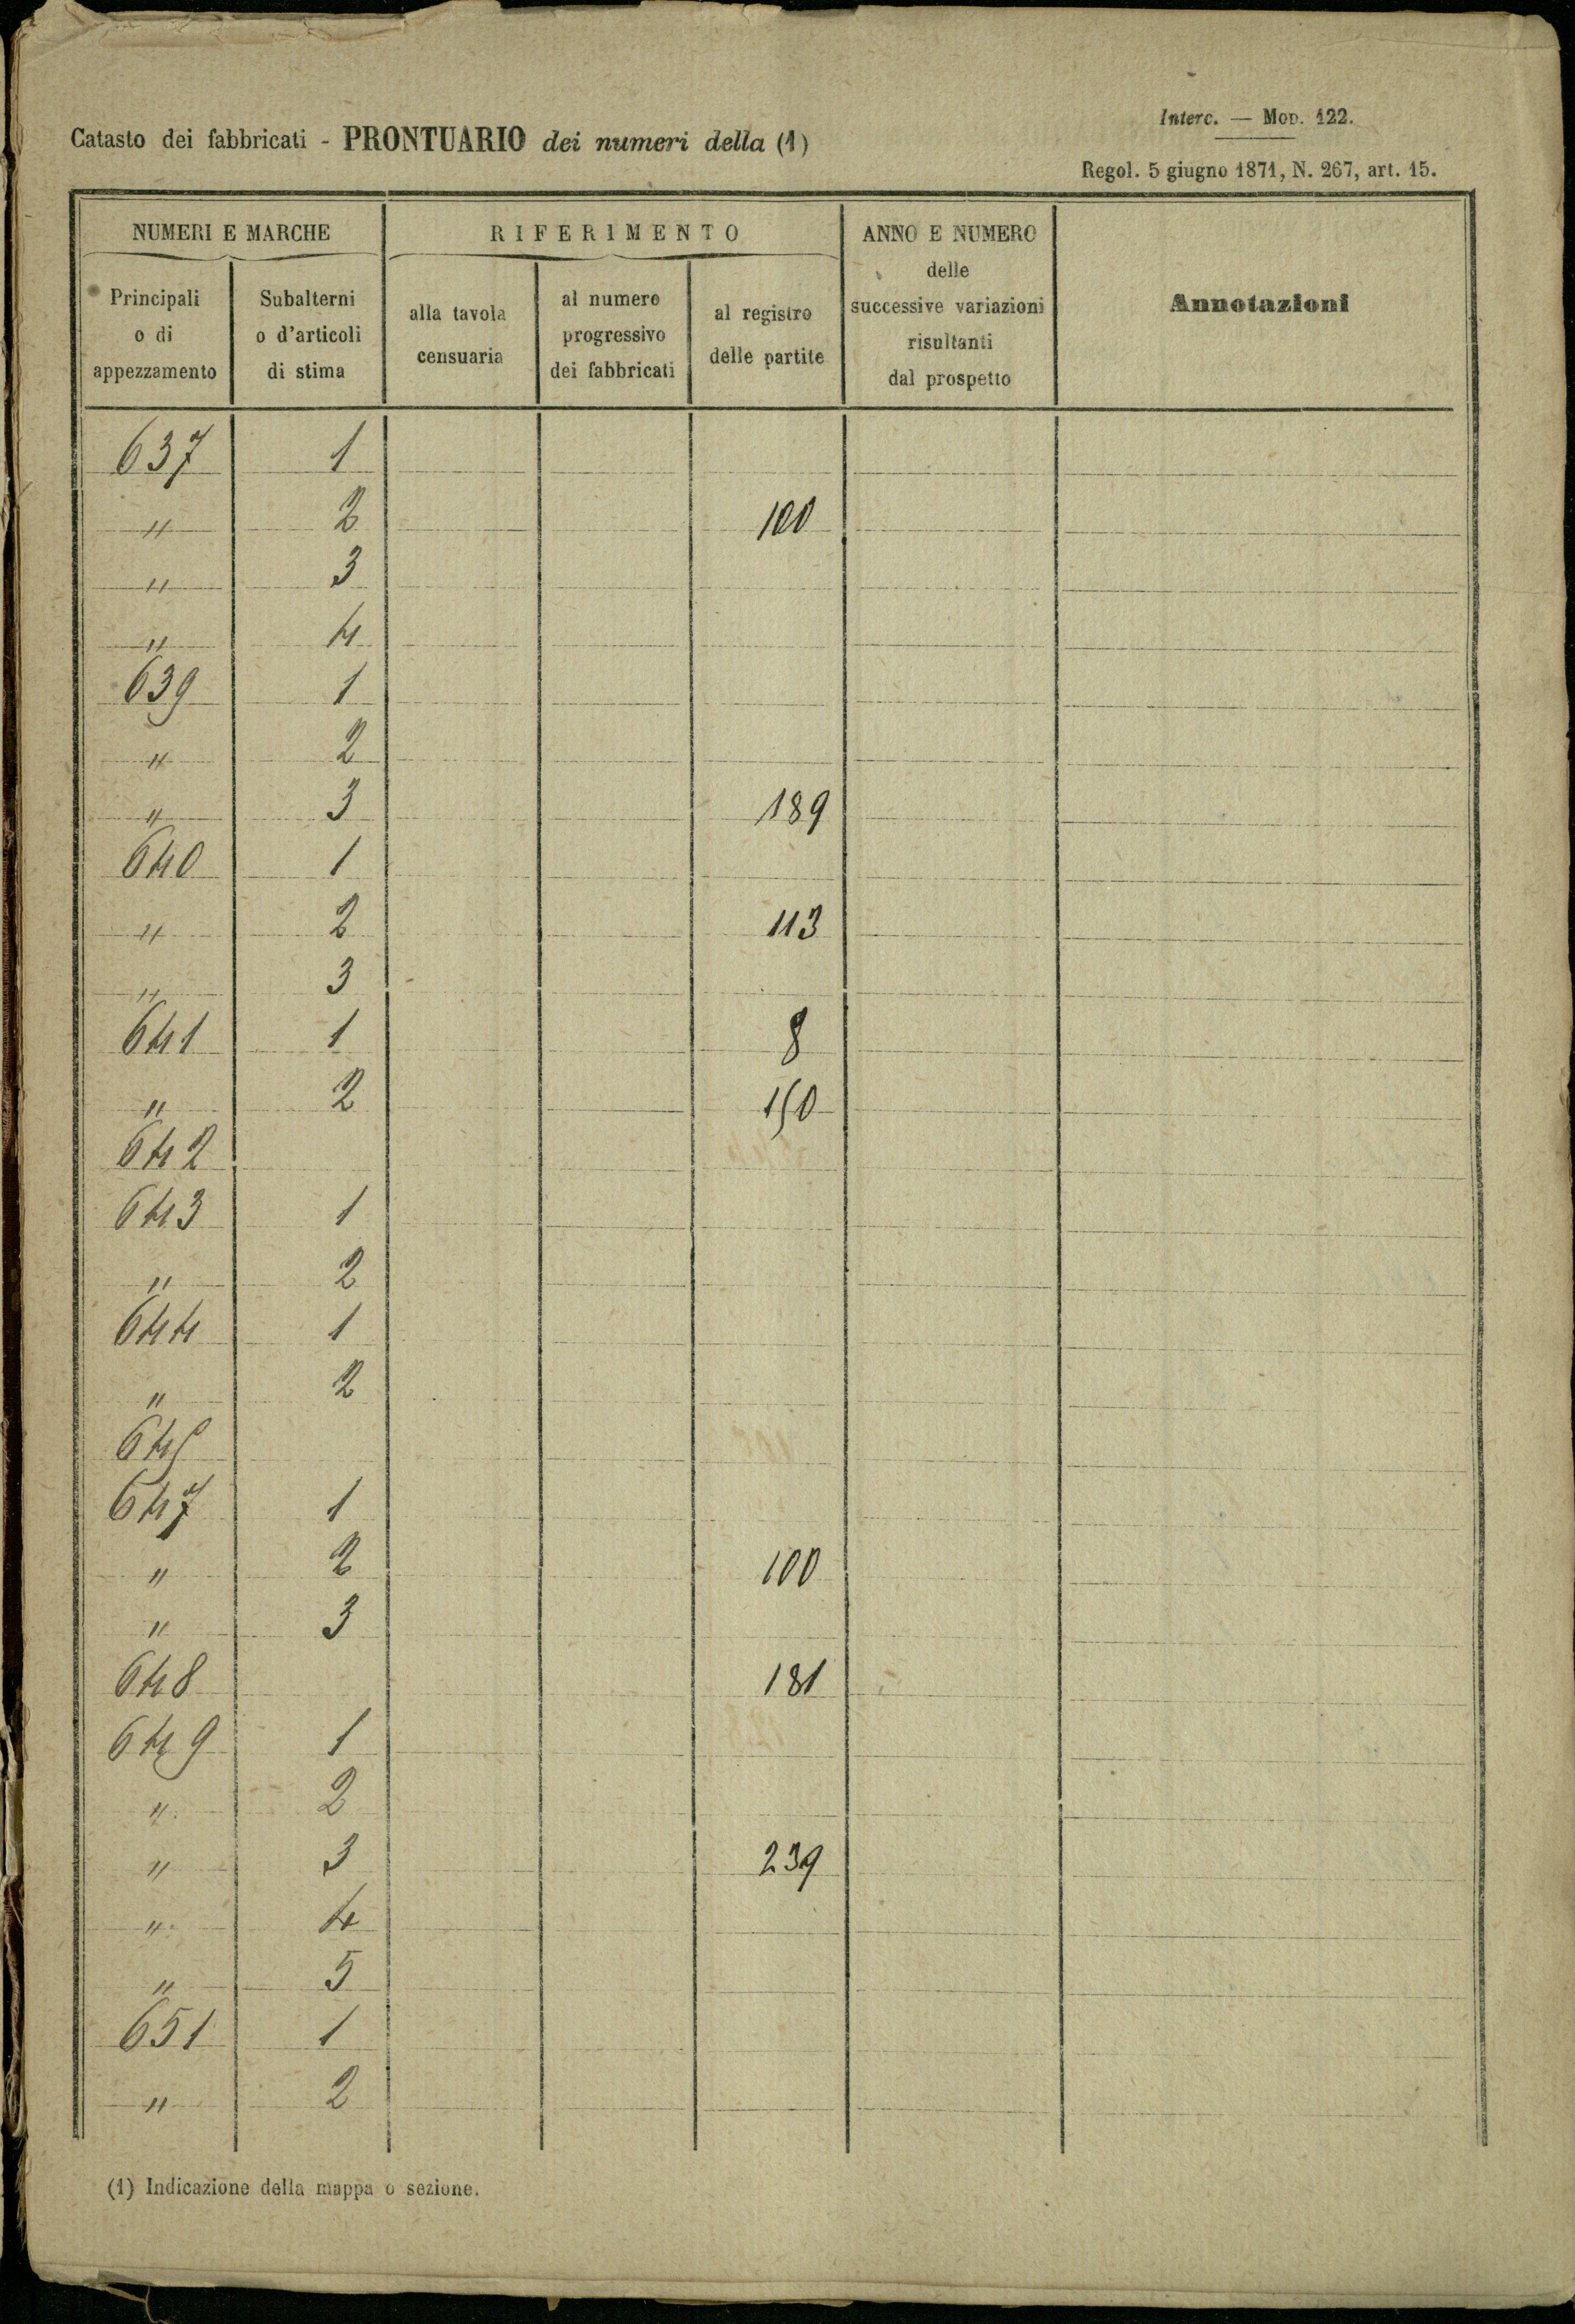 Interc. — Mod. 122.
Catasto dei fabbricati - PRONTUARIO dei numeri della (1)
Regol. 5 giugno 1871, N. 267, art. 15.
NUMERI E MARCHE RIFERIMENTO ANNO E NUMERO delle successive variazioni risultanti dal prospetto Annotazioni
Principali o di appezzamento Subalterni o d'articoli di stima alla tavola censuaria al numero progressivo dei fabbricati al registro delle partite
637 1
" 2 100
" 3
" 4
639 1
" 2
" 3 189
640 1
" 2 113
" 3
641 1 8
" 2 150
642
643 1
" 2
644 1
" 2
645
647 1
" 2 100
" 3
648 181
649 1
" 2
" 3 239
" 4
" 5
651 1
" 2
(1) Indicazione della mappa o sezione.